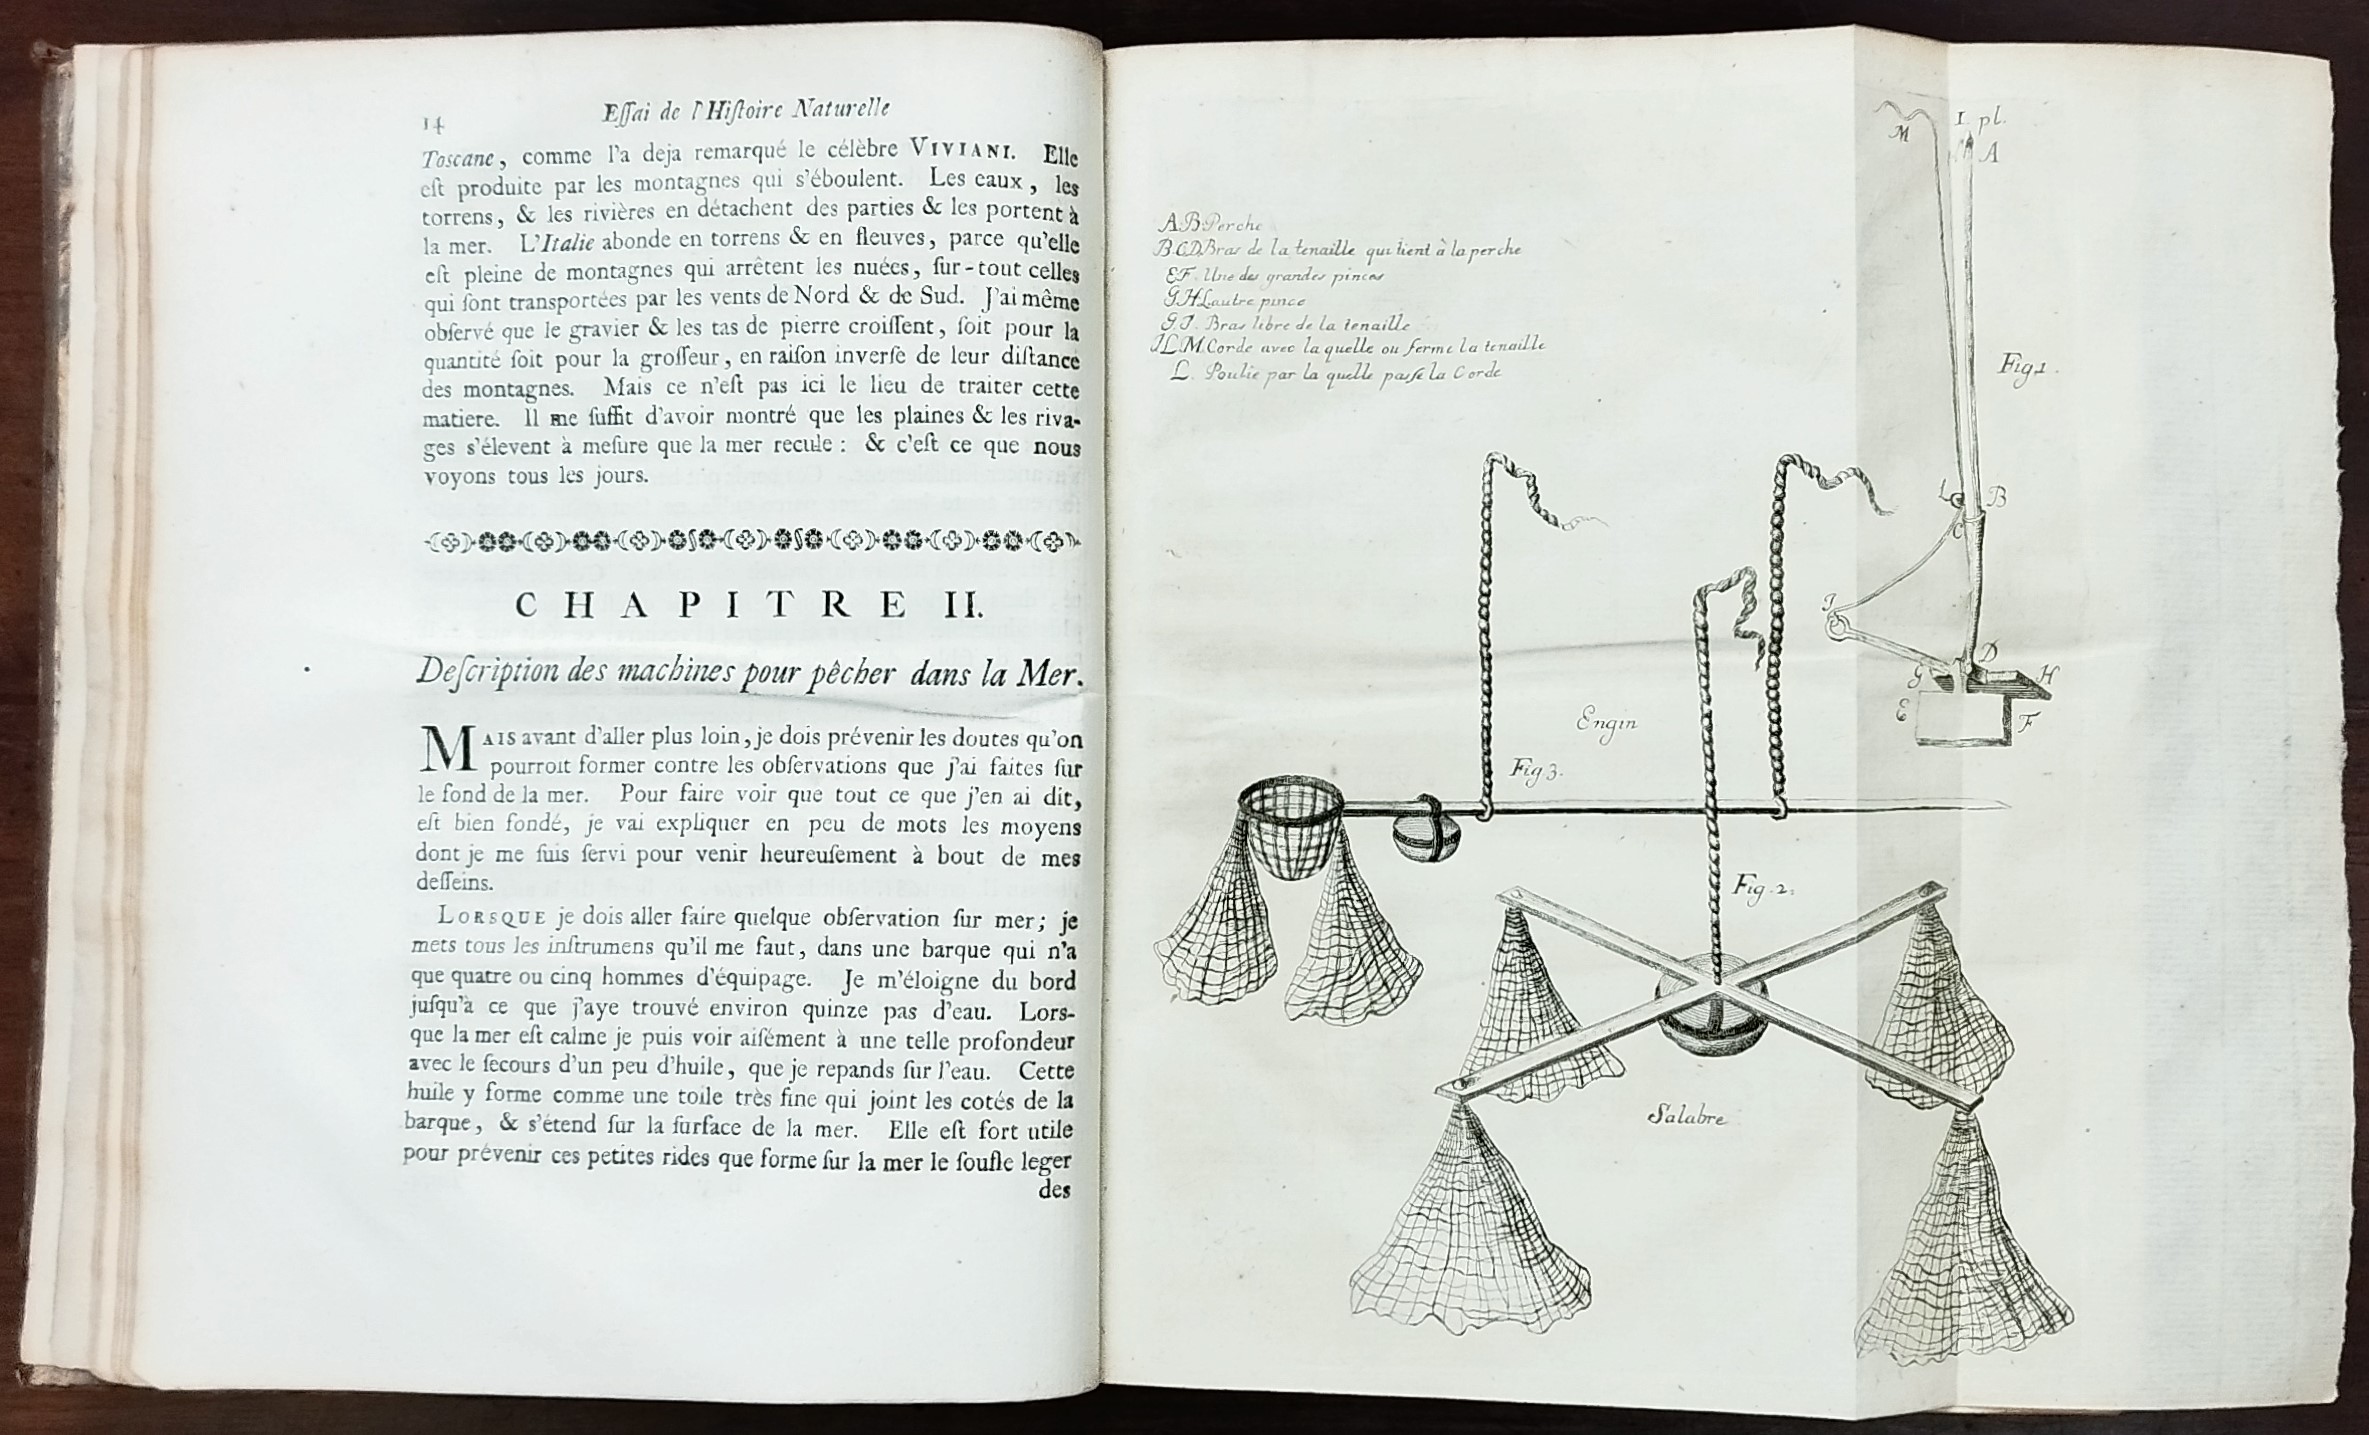 14 Eſſai de l'Hiſtoire Naturelle
Toscane, comme l'a deja remarqué le célèbre VIVIANI. Elle
eſt produite par les montagnes qui s'éboulent. Les eaux, les
torrens, & les rivières en détachent des parties & les portent à
la mer. L'Italie abonde en torrens & en fleuves, parce qu'elle
eſt pleine de montagnes qui arrêtent les nuées, ſur-tout celles
qui ſont transportées par les vents de Nord & de Sud. J'ai même
obſervé que le gravier & les tas de pierre croiſſent, ſoit pour la
quantité ſoit pour la groſſeur, en raiſon inverſe de leur diſtance
des montagnes. Mais ce n'eſt pas ici le lieu de traiter cette
matiere. Il me ſuffit d'avoir montré que les plaines & les riva-
ges s'élevent à meſure que la mer recule: & c'eſt ce que nous
voyons tous les jours.
CHAPITRE II.
Deſcription des machines pour pêcher dans la Mer.
MAIS avant d'aller plus loin, je dois prévenir les doutes qu'on
pourroit former contre les obſervations que j'ai faites ſur
le fond de la mer. Pour faire voir que tout ce que j'en ai dit,
eſt bien fondé, je vai expliquer en peu de mots les moyens
dont je me ſuis ſervi pour venir heureuſement à bout de mes
deſſeins.
LORSQUE je dois aller faire quelque obſervation ſur mer; je
mets tous les inſtrumens qu'il me faut, dans une barque qui n'a
que quatre ou cinq hommes d'équipage. Je m'éloigne du bord
juſqu'à ce que j'aye trouvé environ quinze pas d'eau. Lors-
que la mer eſt calme je puis voir aiſément à une telle profondeur
avec le ſecours d'un peu d'huile, que je repands ſur l'eau. Cette
huile y forme comme une toile très fine qui joint les cotés de la
barque, & s'étend ſur la ſurface de la mer. Elle eſt fort utile
pour prévenir ces petites rides que forme ſur la mer le ſoufle leger
des
I. pl.
M
A
A.B. Perche
B.C.D. Bras de la tenaille qui tient à la perche
E.F. Une des grandes pinces
G.H. L'autre pince
G.I. Bras libre de la tenaille
I.L.M. Corde avec la quelle ou ferme la tenaille
L. Poulie par la quelle paſſe la Corde
Fig 1.
L
B
C
I
D
G
H
E
F
Engin
Fig 3.
Fig. 2.
Salabre